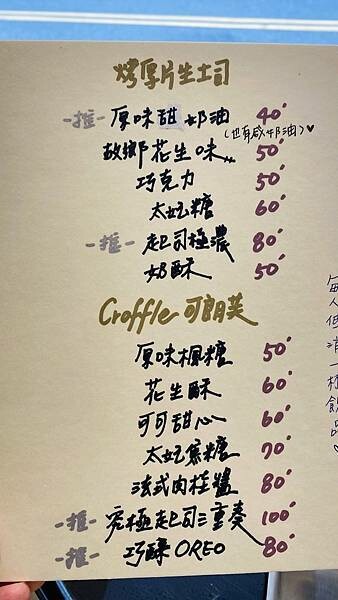 烤厚片生土司
-推- 原味甜奶油 40'
(也有咸奶油)♥
故鄉花生味 50'
巧克力 50'
太妃糖 60'
-推- 起司極濃 80'
奶酥 50'
Croffle 可朗芙
原味楓糖 50'
花生酥 60'
可可甜心 60'
太妃焦糖 70'
法式肉桂醬 80'
-推- 究極起司三重奏 100'
-推- 巧酥OREO 80'
每人低消一杯飲品♡